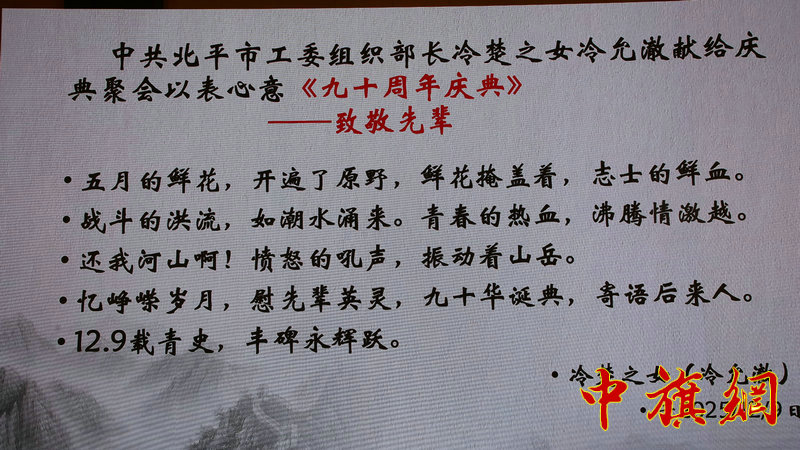 中共北平市工委组织部长冷楚之女冷允澈献给庆
典聚会以表心意《九十周年庆典》
——致敬先辈
• 五月的鲜花，开遍了原野，鲜花掩盖着，志士的鲜血。
• 战斗的洪流，如潮水涌来。青春的热血，沸腾情激越。
• 还我河山啊！愤怒的吼声，振动着山岳。
• 忆峥嵘岁月，慰先辈英灵，九十华诞典，寄语后来人。
• 12.9载青史，丰碑永辉跃。
• 冷楚之女（冷允澈）
中旗網